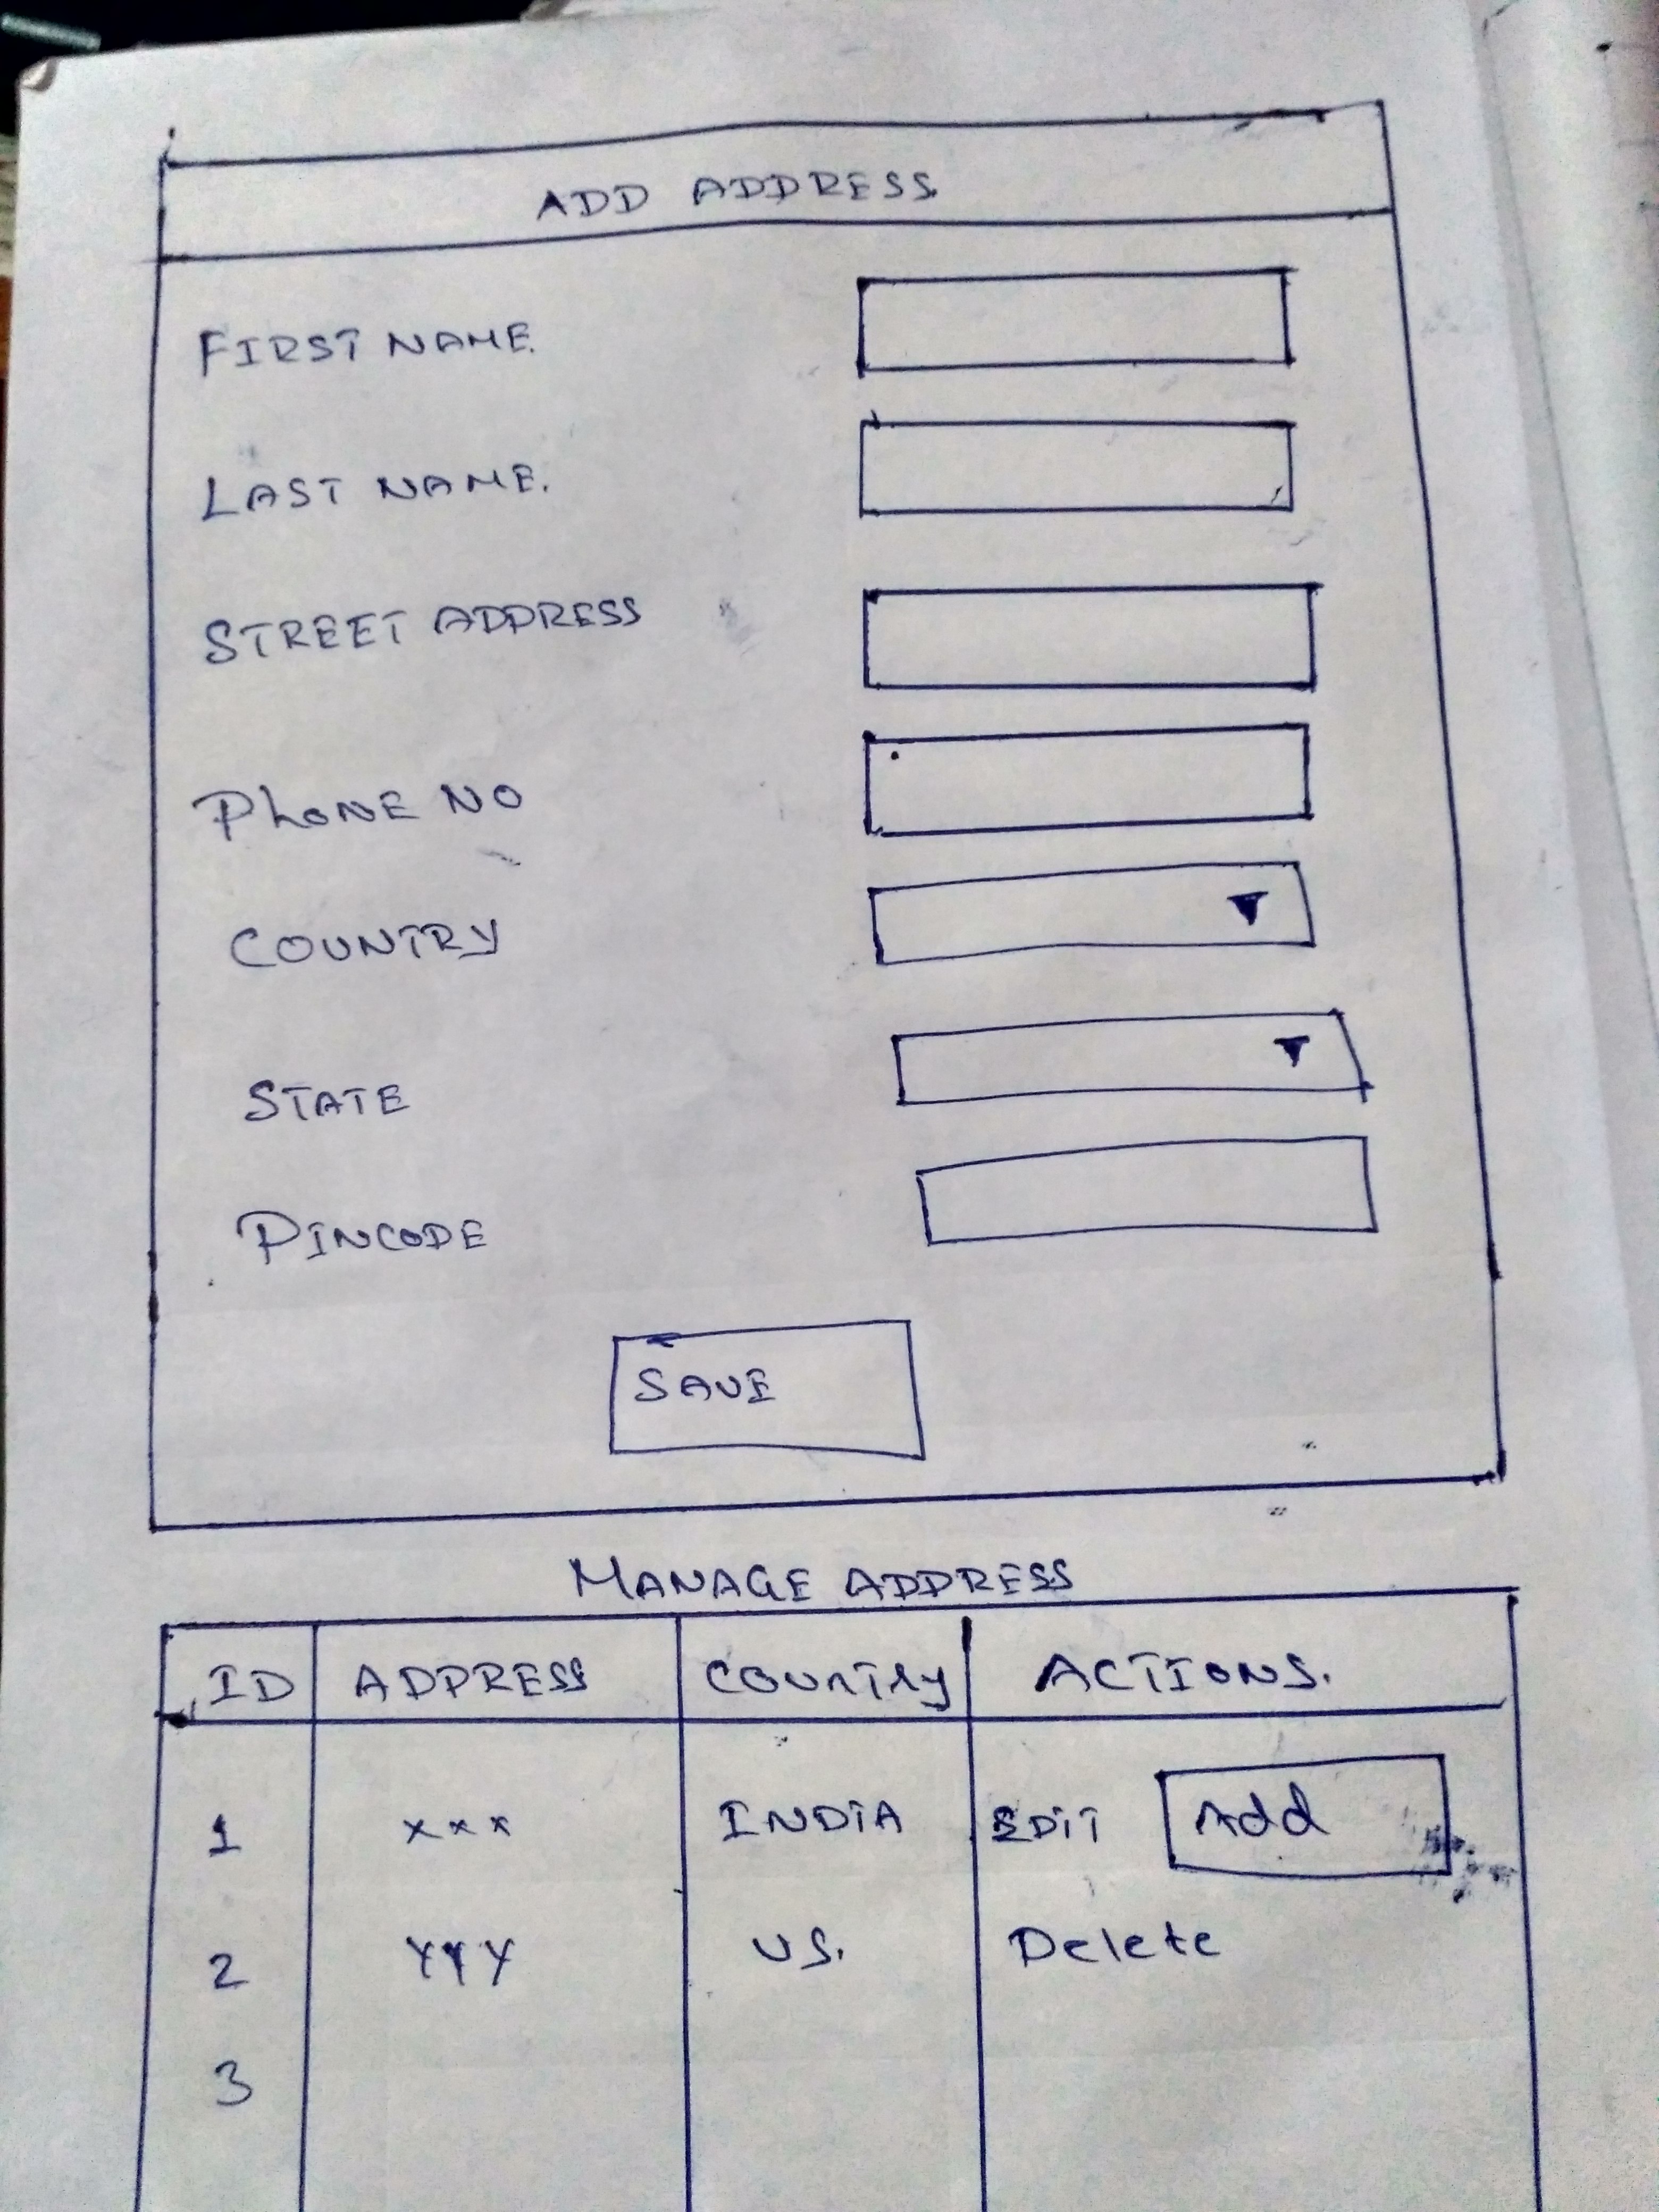 ADD ADDRESS
FIRST NAME.
LAST NAME.
STREET ADDRESS
PhONE NO
COUNTRY
STATE
PINCODE
SAVE
MANAGE ADDRESS
ID ADDRESS COUnTRy ACTIONS.
1 xxx INDiA EDiT Add
2 YYY US. Delete
3